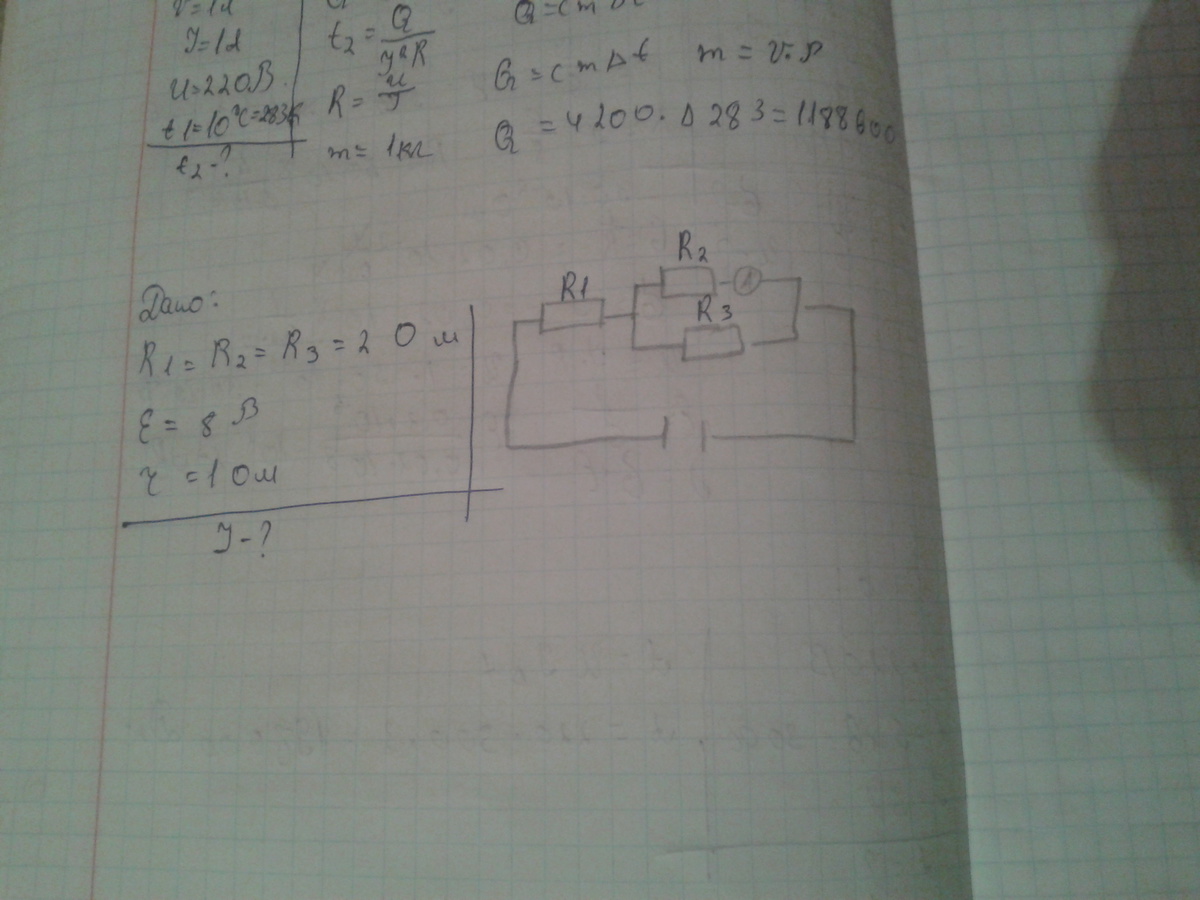 V=1л
J=1А
U=220В
t1=10°C=283К
t2-?
t2=Q/J²R
R=U/J
m=1кг
Q=cm
Q=cm∆t m=v·ρ
Q=4200·∆283=1188600
Дано:
R1=R2=R3=2 Ом
ε=8 В
r=1 Ом
J-?
R1
R2
A
R3